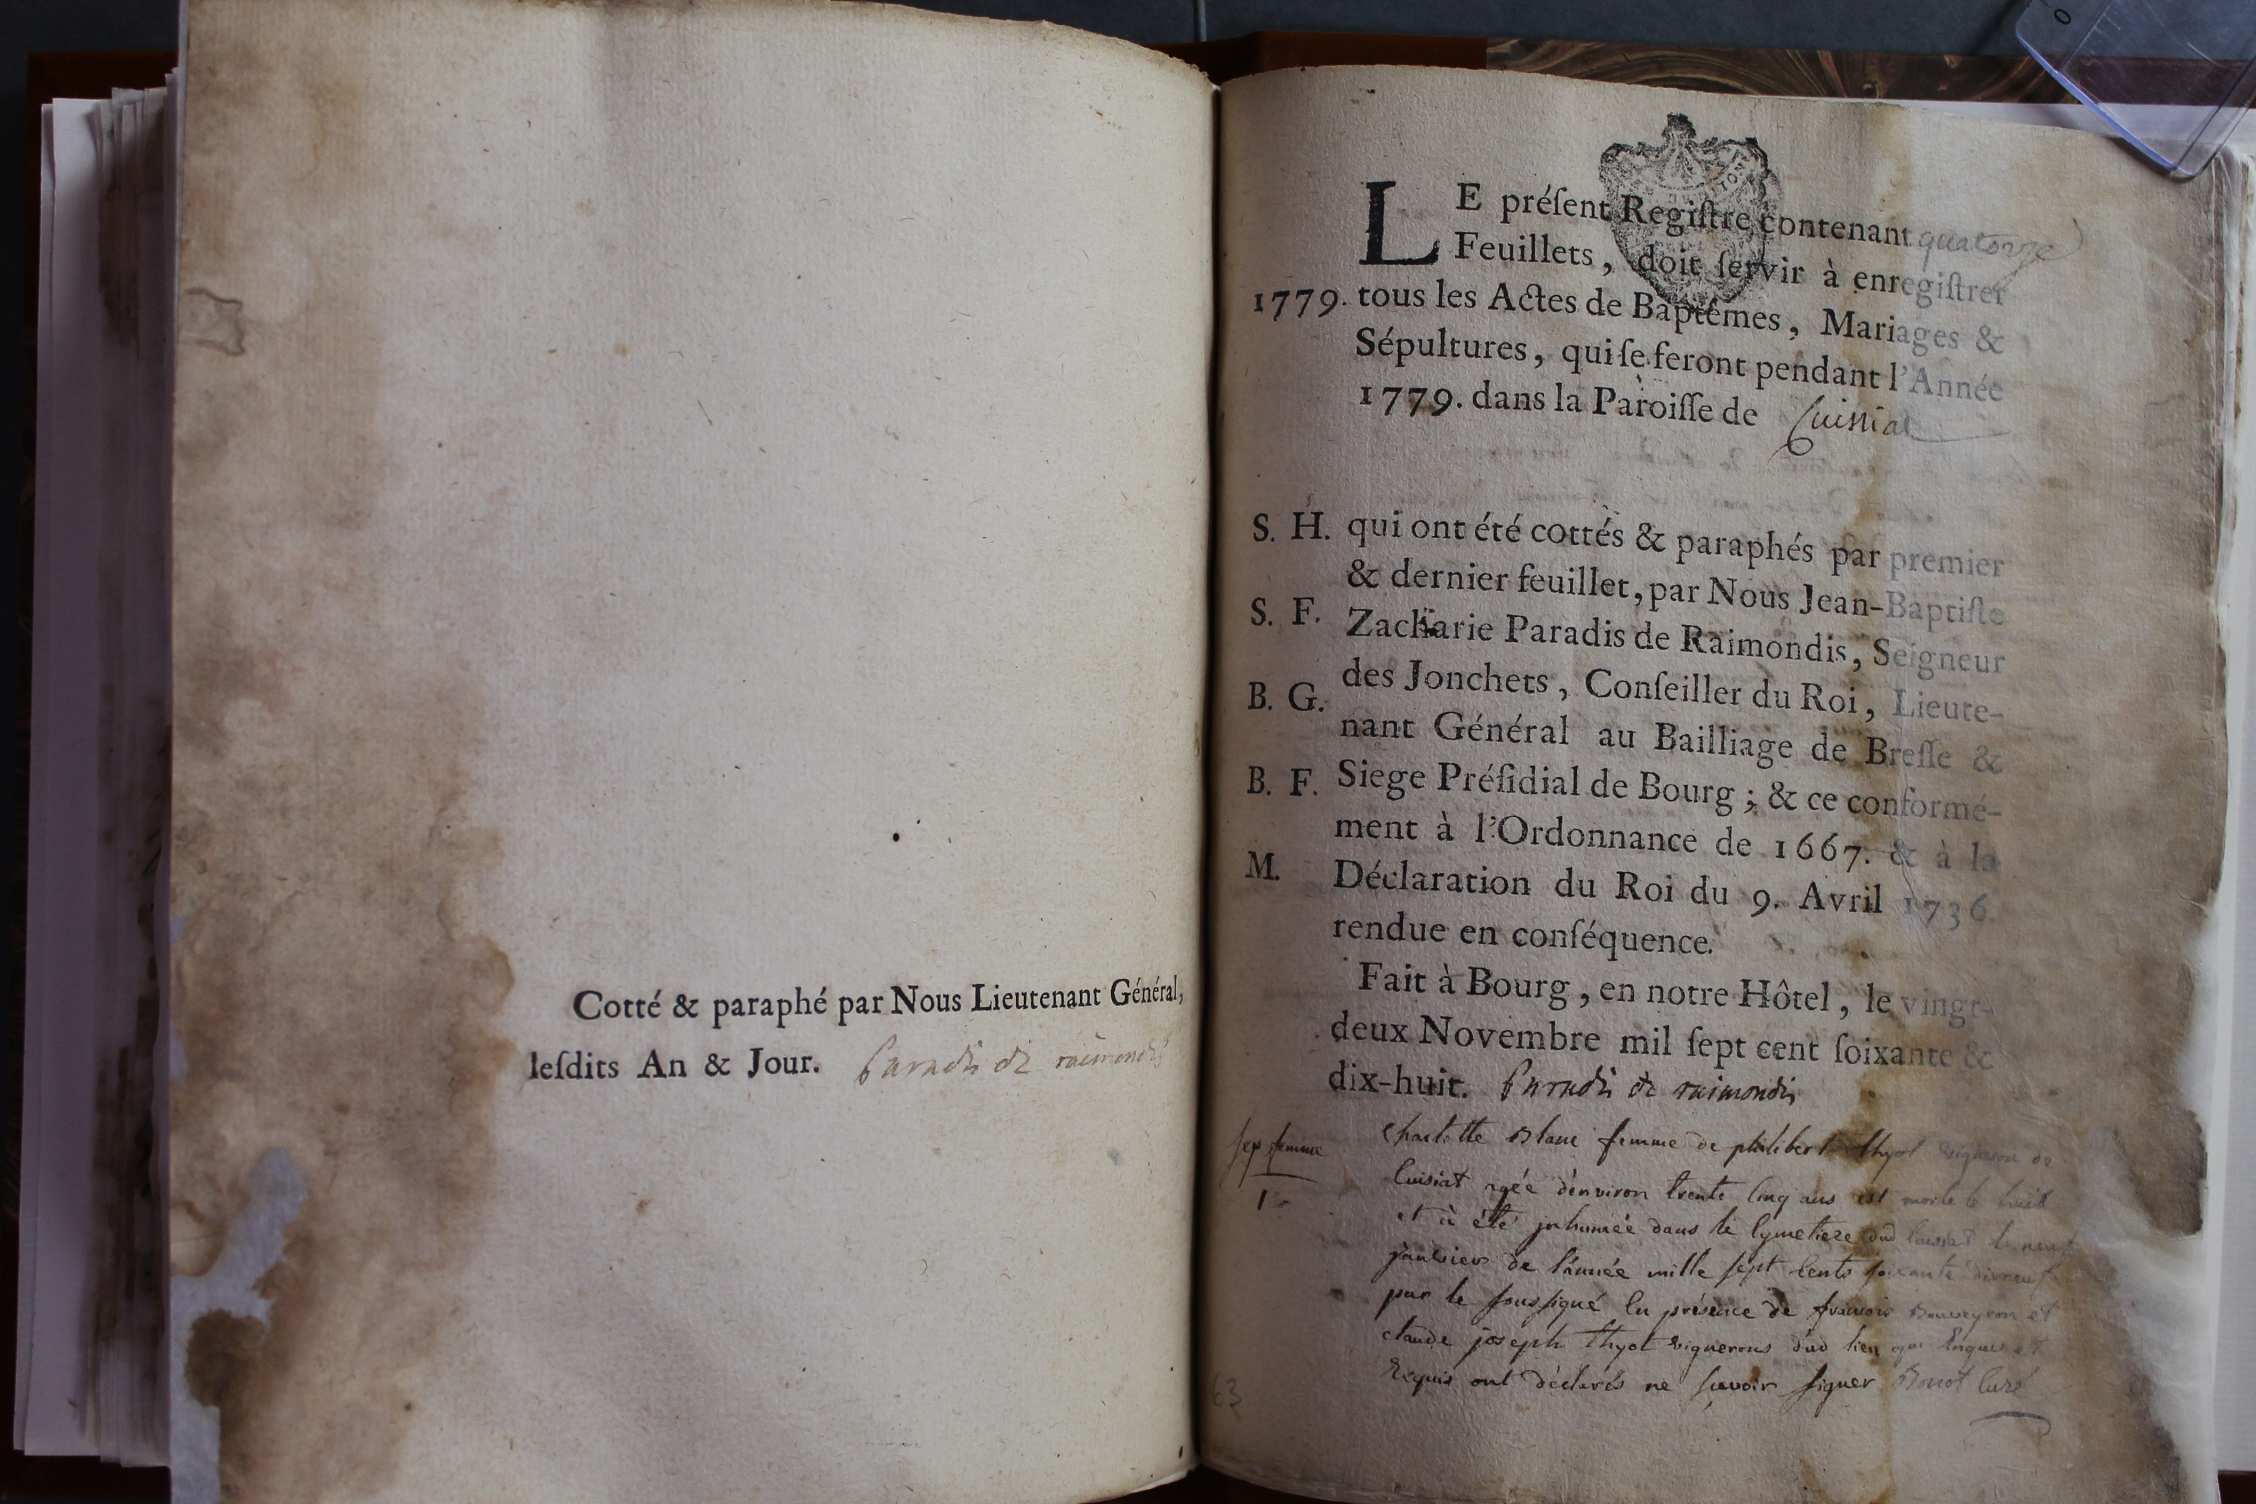 Cotté & paraphé par Nous Lieutenant Général,
leſdits An & Jour. Paradis de raimondis
LE préſent Regiſtre, contenant quatorze
Feuillets, doit ſervir à enregiſtrer
1779. tous les Actes de Baptêmes, Mariages &
Sépultures, qui ſe feront pendant l'Année
1779. dans la Paroiſſe de Cuisiat
S. H. qui ont été cottés & paraphés par premier
& dernier feuillet, par Nous Jean-Baptiſte
S. F. Zacharie Paradis de Raimondis, Seigneur
des Jonchets, Conſeiller du Roi, Lieute-
B. G. nant Général au Bailliage de Breſſe &
B. F. Siege Préſidial de Bourg; & ce conformé-
ment à l'Ordonnance de 1667. & à la
M. Déclaration du Roi du 9. Avril 1736.
rendue en conſéquence.
Fait à Bourg, en notre Hôtel, le vingt-
deux Novembre mil ſept cent ſoixante &
dix-huit. Paradis de raimondis
sep femme charlotte Blanc femme de philibert thyot vigneron de
1 Cuisiat agée d'environ trente cinq ans est morte le huit
et à été inhumée dans le Cymetiere dud Cuisiat le neuf
janvier de l'année mille sept cents soixante dixneuf
par le soussigné en présence de francois Bouveyron et
claude joseph thyot vignerons dud lieu qui Enquis et
Requis ont déclarés ne sçavoir signer Curé
63